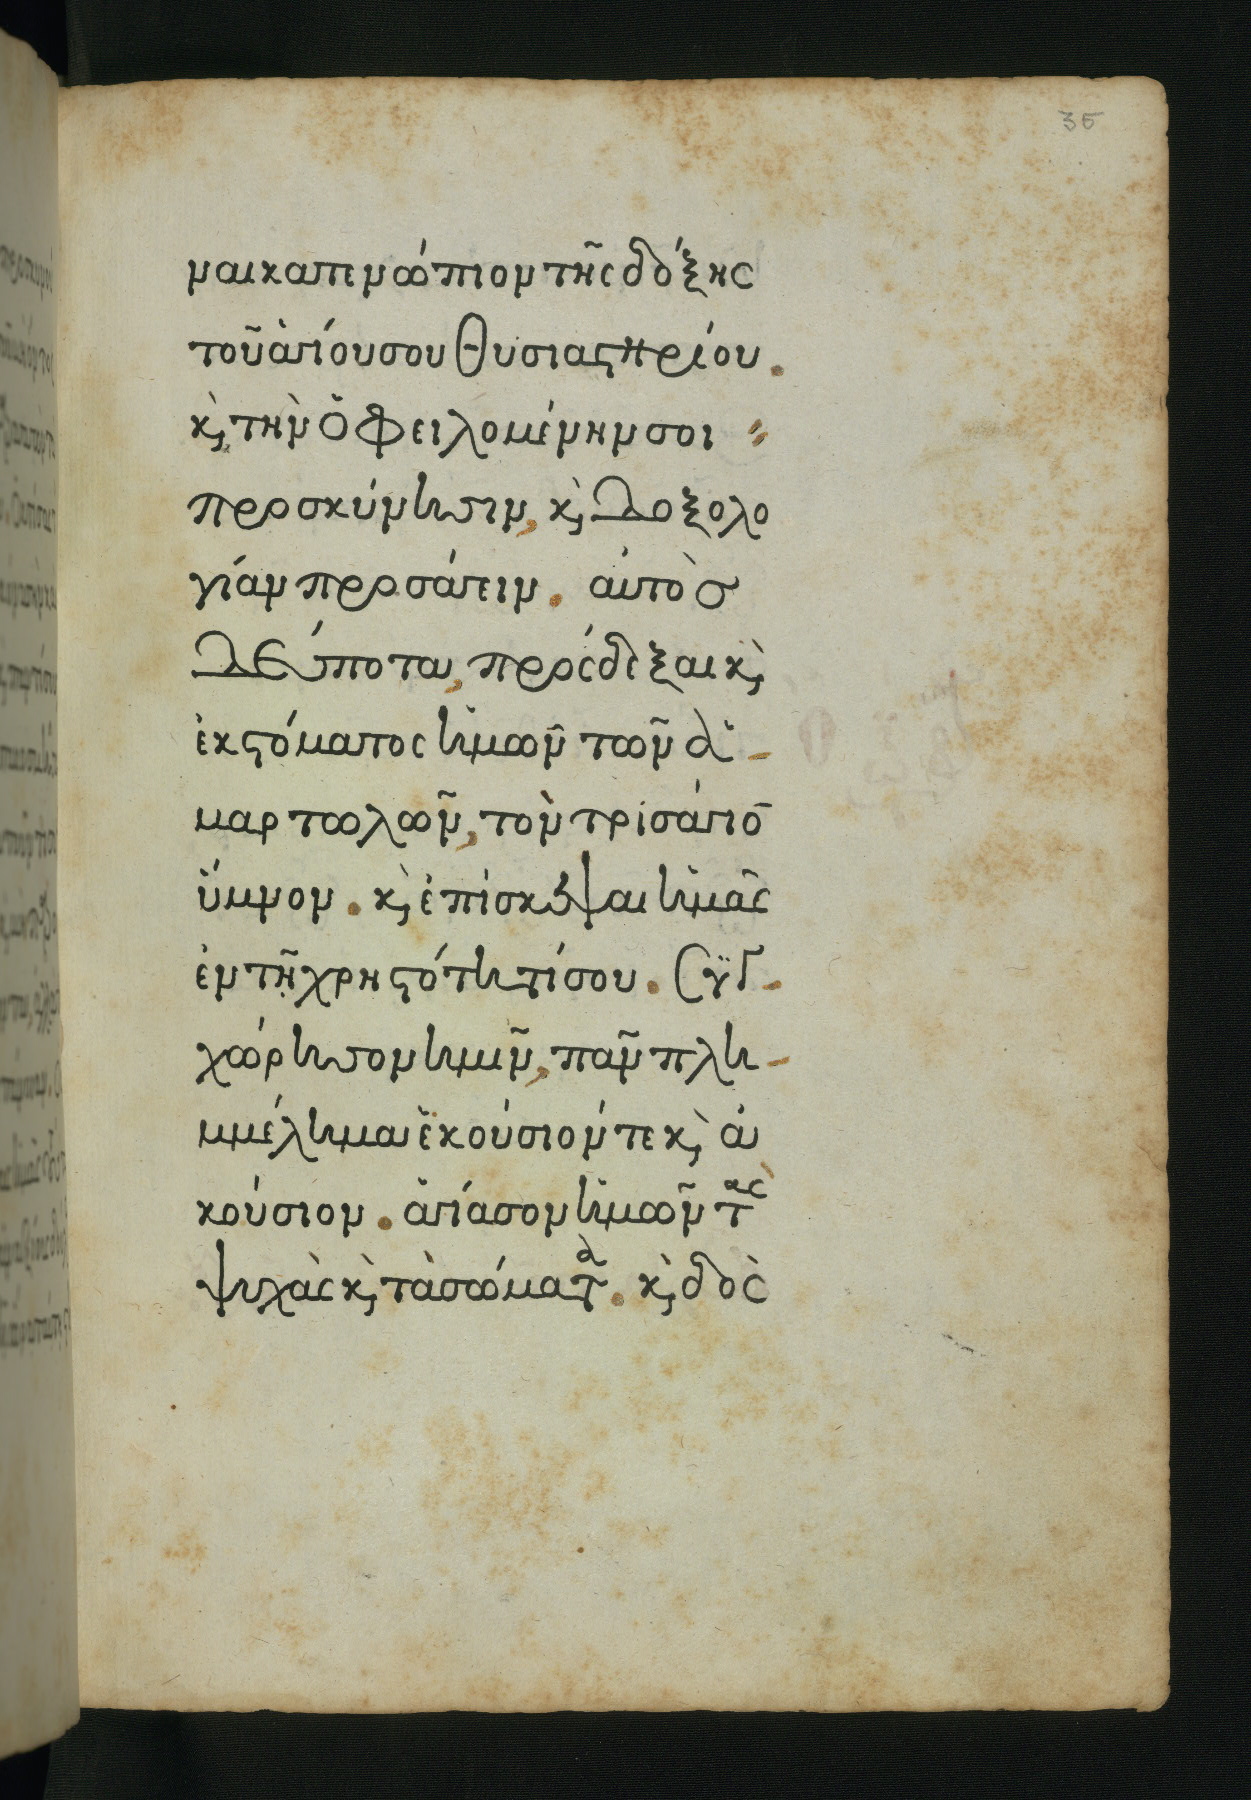 35
ναι κατενώπιον τῆς δόξης
τοῦ ἁγίου σου θυσιαστηρίου.
κ̀ τὴν ὀφειλομένην σοι
προσκύνησιν, κ̀ δοξολο
γίαν προσάγειν. αὐτὸσ
Δέσποτα, πρόσδεξαι κ̀
ἐκ στόματος ἡμῶν τῶν ἁ
μαρτωλῶν, τὸν τρισάγιο̄
ὕμνον. κ̀ ἐπίσκεψαι ἡμᾶς
ἐν τῇ χρηστότητί σου. Συγ
χώρησον ἡμῖν, πᾶν πλη
μμέλημα ἑκούσιόν τε κ̀ ἀ
κούσιον. ἁγίασον ἡμῶν τὰς
ψυχὰς κ̀ τὰ σώματα. κ̀ δὸς